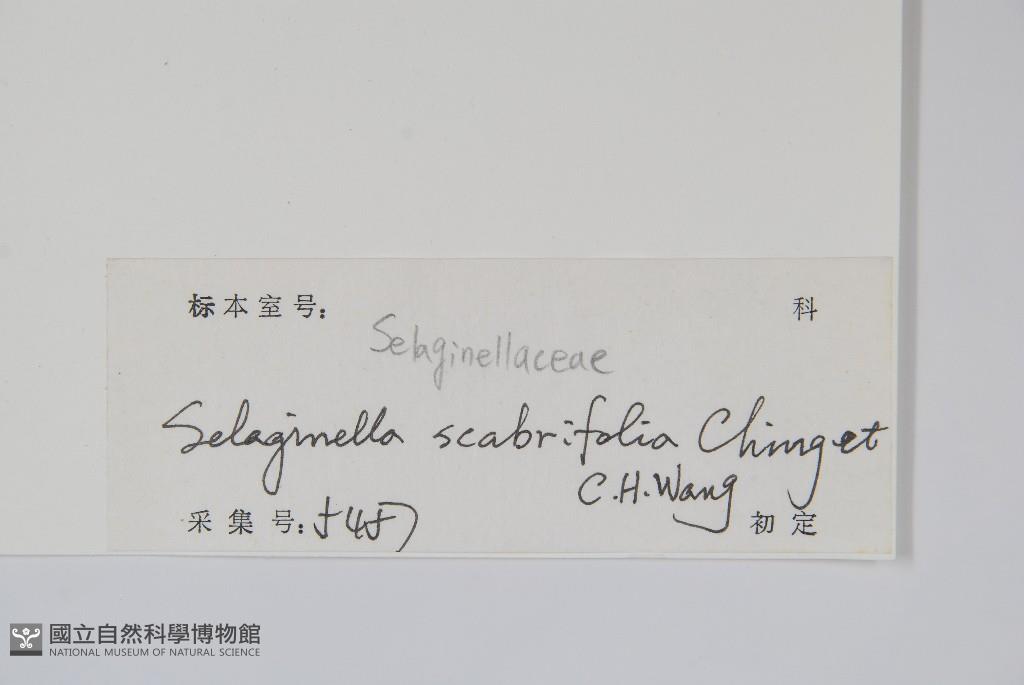 标本室号： 科
Selaginellaceae
Selaginella scabrifolia Ching et
C.H.Wang
采集号：5457 初定
國立自然科學博物館
NATIONAL MUSEUM OF NATURAL SCIENCE